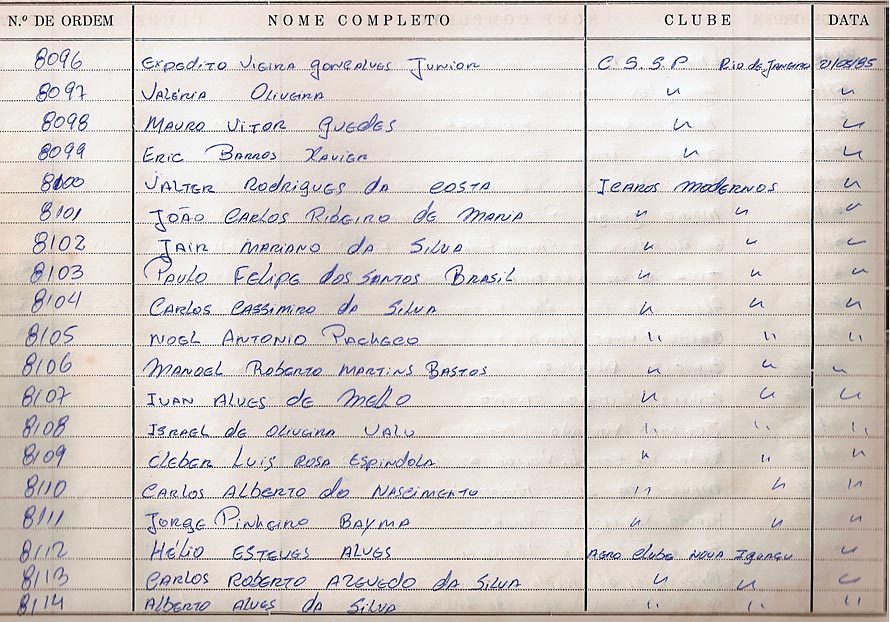 N.º DE ORDEM NOME COMPLETO CLUBE DATA
8096 Expedito Vieira Gonçalves Junior C.S.S.P Rio de Janeiro 21/05/85
8097 Valéria Oliveira " "
8098 Mauro Vitor Guedes " "
8099 Eric Barros Xavier " "
8100 Valter Rodrigues da Costa Icaros Modernos "
8101 João Carlos Ribeiro de Maria " " "
8102 Jair Mariano da Silva " " "
8103 Paulo Felipe dos Santos Brasil " " "
8104 Carlos Cassimiro da Silva " " "
8105 Noel Antonio Pacheco " " "
8106 Manoel Roberto Martins Bastos " " "
8107 Ivan Alves de Mello " " "
8108 Israel de Oliveira Valu " " "
8109 Cleber Luis Rosa Espindola " " "
8110 Carlos Alberto do Nascimento " " "
8111 Jorge Pinheiro Bayma " " "
8112 Hélio Esteves Alves Aero Clube Nova Iguaçu "
8113 Carlos Roberto Azevedo da Silva " " "
8114 Alberto Alves da Silva " " "